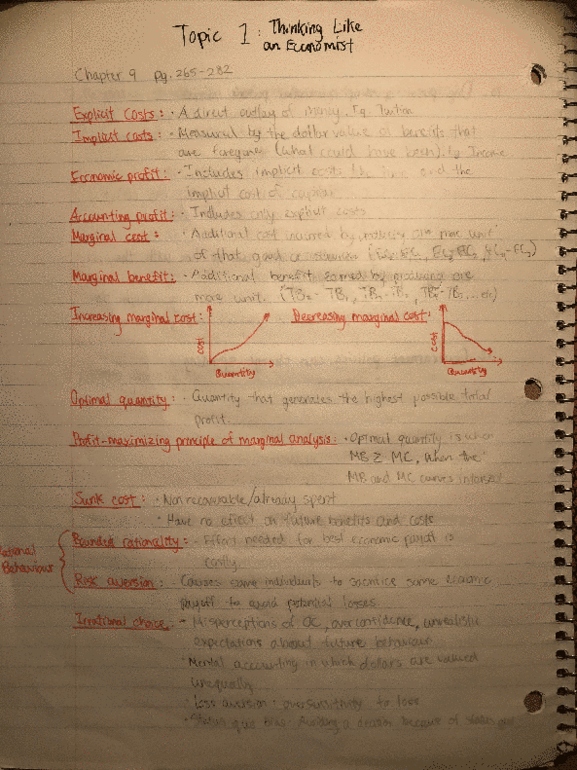 Topic 1: Thinking Like
an Economist
Chapter 9 Pg. 265-282
Explicit Costs: · A direct outlay of money. Eg. Tuition
Implicit costs: · Measured by the dollar value of benefits that
are foregone (what could have been). Eg Income
Economic profit: · Includes implicit costs like time and the
implicit cost of capital
Accounting profit: · Includes only explicit costs
Marginal cost: · Additional cost incurred by making one more unit
of that good or service
Marginal benefit: · Additional benefit earned by producing one
more unit.
Increasing marginal cost: Decreasing marginal cost:
Cost Cost
Quantity Quantity
Optimal quantity: · Quantity that generates the highest possible total
profit.
Profit-maximizing principle of marginal analysis: · Optimal quantity is when
MB ≥ MC, when the
MB and MC curves intersect
Sunk cost: · Non recoverable/already spent
· Have no effect on future benefits and costs
Bounded rationality: - Effort needed for best economic payoff is
costly
Rational
Behaviour
Risk aversion: - Causes some individuals to sacrifice some economic
payoff to avoid potential losses
Irrational choice: · Misperceptions of OC, overconfidence, unrealistic
expectations about future behaviour
· Mental accounting in which dollars are valued
unequally
· Loss aversion: oversensitivity to loss
· Status quo bias: a decision because of status quo